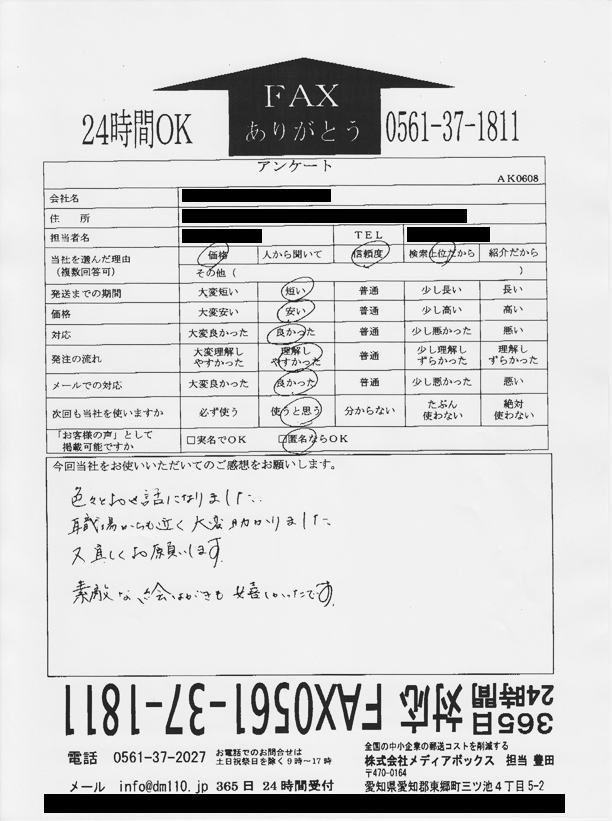 FAX
ありがとう
24時間OK
0561-37-1811
アンケート
AK0608
会社名
住 所
担当者名 TEL
当社を選んだ理由 (複数回答可) 価格 人から聞いて 信頼度 検索上位だから 紹介だから
その他( )
発送までの期間 大変短い 短い 普通 少し長い 長い
価格 大変安い 安い 普通 少し高い 高い
対応 大変良かった 良かった 普通 少し悪かった 悪い
発注の流れ 大変理解しやすかった 理解しやすかった 普通 少し理解しずらかった 理解しずらかった
メールでの対応 大変良かった 良かった 普通 少し悪かった 悪い
次回も当社を使いますか 必ず使う 使うと思う 分からない たぶん使わない 絶対使わない
「お客様の声」として掲載可能ですか □実名でOK □匿名ならOK
今回当社をお使いいただいてのご感想をお願いします。
色々とお世話になりました。
職場からも近く大変助かりました
又宜しくお願いします。
素敵な絵はがきも嬉しかったです。
365日24時間対応 FAX0561-37-1811
電話 0561-37-2027 お電話でのお問合せは
土日祝祭日を除く9時～17時
メール info@dm110.jp 365日24時間受付
全国の中小企業の郵送コストを削減する
株式会社メディアボックス 担当 豊田
〒470-0164
愛知県愛知郡東郷町三ツ池4丁目5-2